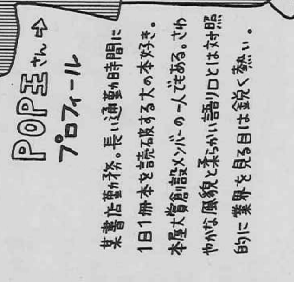 POP王さん⇨
プロフィール
某書店勤務。長い通勤時間に
1日1冊本を読破する大の本好き。
本屋大賞創設メンバーの一人でもある。さわ
やかな風貌と柔らかい語り口とは対照
的に業界を見る目は鋭く熱い。